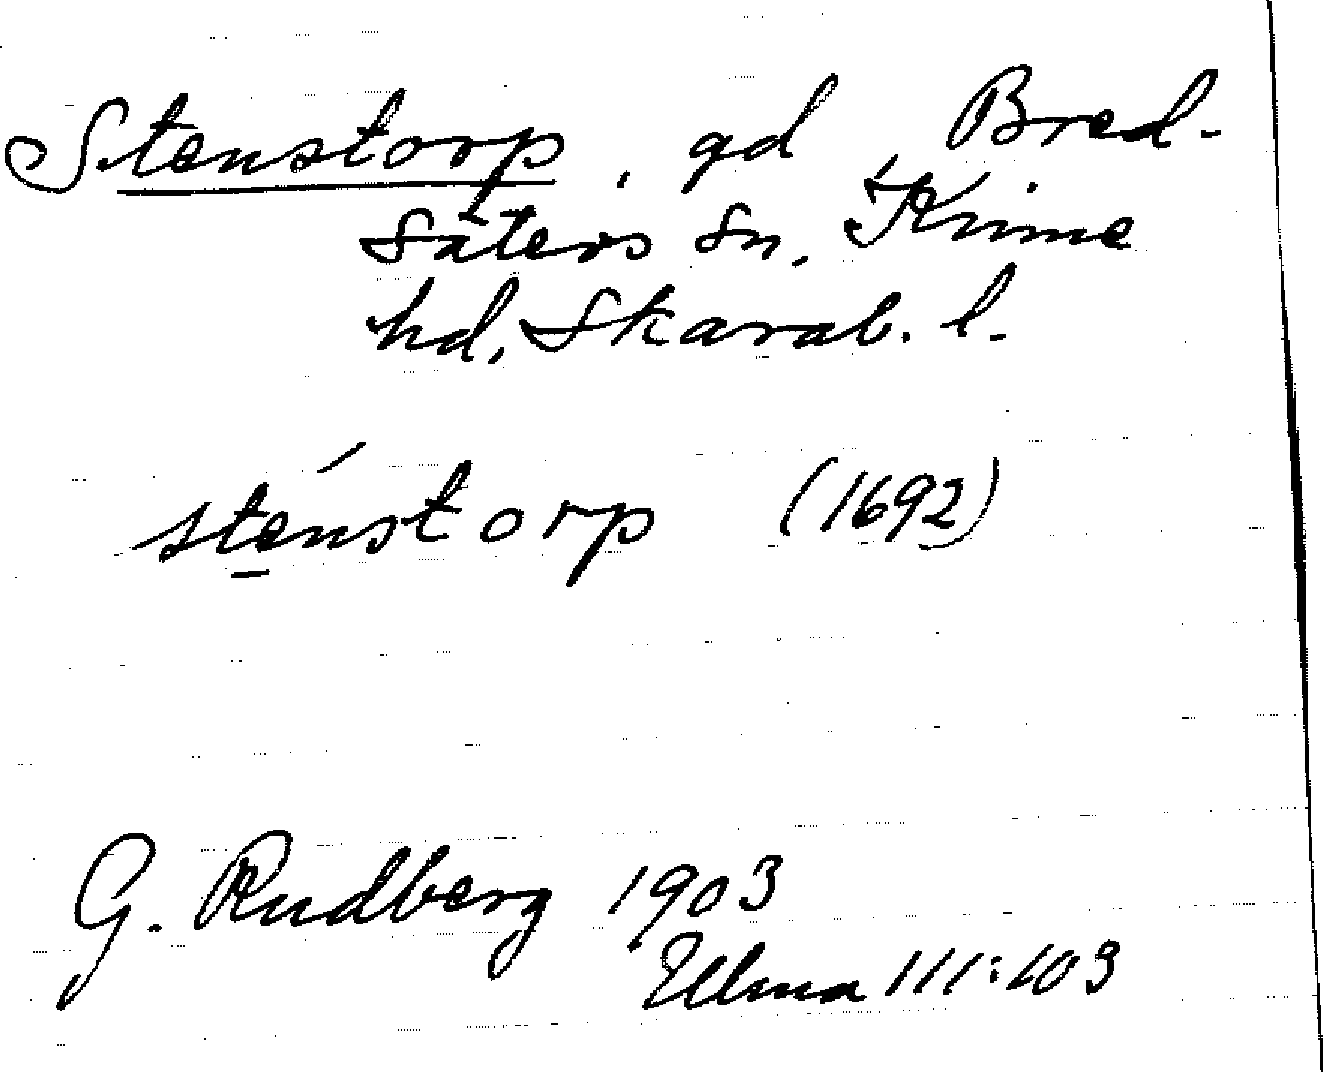 Stenstorp, gd, Bred-
säters sn, Kinne
hd, Skarab. l.
sténstorp (1692)
G. Rudberg 1903
Ulma 111:103